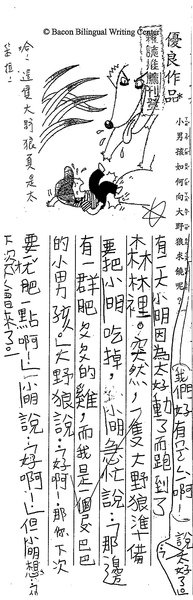 © Bacon Bilingual Writing Center
優良作品
雜誌推薦刊登
小男孩如何向大野狼求饒呢?
有一天小明因為太好動了而跑到了
森林裡。突然，一隻大野狼準備
要把小明吃掉，小明急忙說：「那邊
有一群肥多多的雞而我是個皮巴巴
的小男孩。」大野狼說：「好啊！那你下次
要肥一點啊！」小明說：「好啊！」但小明想：
下次不會來了。
哈！這隻大野狼真是太
笨